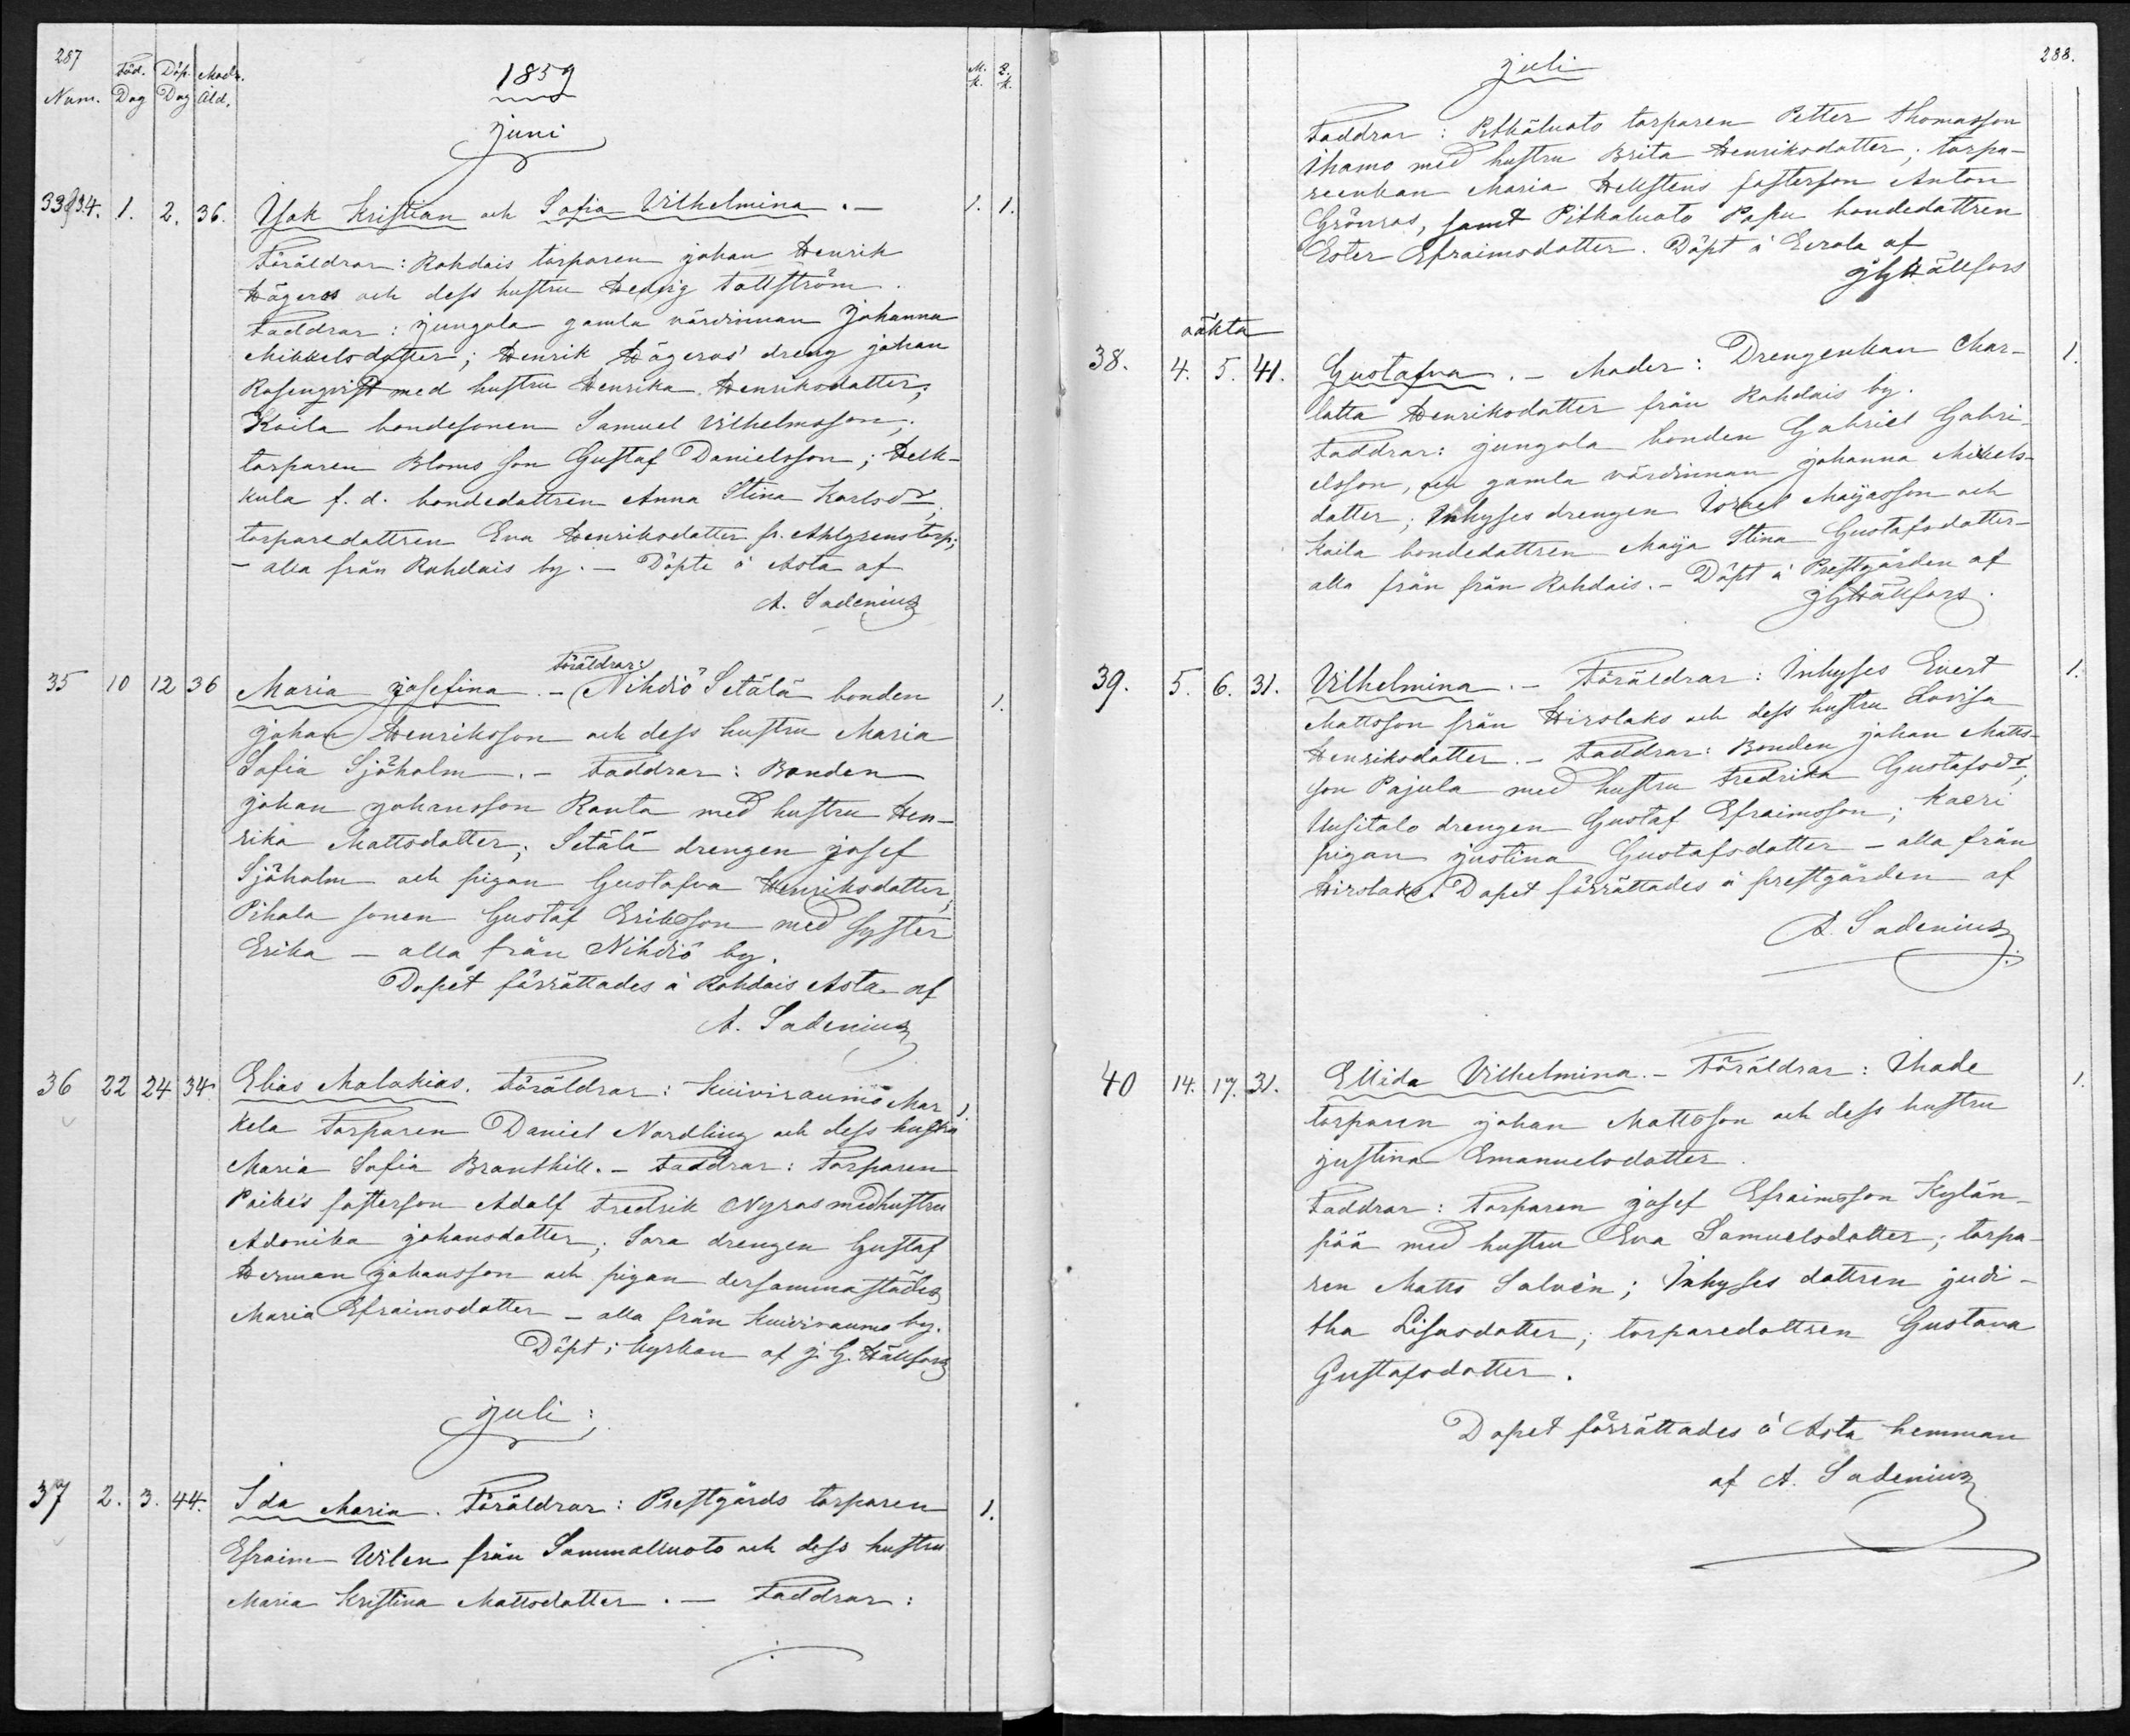 287
Föd. Döp. Mod:s
Num. Dag Dag Åld.
1859
M. Q.
K. K.
Juni
33 & 34. 1. 2. 36. Isak Kristian och Sofia Vilhelmina. — 1. 1.
Föräldrar: Rahdais torparen Johan Henrik
Hägeros och dess hustru Hedvig Tallström.
Faddrar: Jungola gamla värdinnan Johanna
Mikkelsdotter; Henrik Hägeros' dreng Johan
Rosenqvist med hustru Henrika Henriksdotter;
Koila bondesonen Samuel Vilhelmsson;
torparen Bloms son Gustaf Danielsson; Helk-
kula f. d. bondedottren Anna Stina Karlsdr;
torparedottren Eva Henriksdotter fr. Ahlgrenstorp;
— alla från Rahdais by. — Döpte å Asta af
A. Sadenius
35 10 12 36 Maria Josefina. — Föräldrar: Nihdiö Setälä bonden 1.
Johan Henriksson och dess hustru Maria
Sofia Sjöholm. — Faddrar: Bonden
Johan Johansson Ranta med hustru Hen-
rika Mattsdotter; Setälä drengen Josef
Sjöholm och pigan Gustafva Henriksdotter;
Pihala sonen Gustaf Eriksson med syster
Erika — alla från Nihdiö by.
Dopet förrättades å Rahdais Asta af
A. Sadenius
36 22 24 34. Elias Malakias. Föräldrar: Kuiviraumo Mar 1.
kela Torparen Daniel Nordling och dess hustru
Maria Sofia Branthill. — Faddrar: Torparen
Paike's fosterson Adolf Fredrik Nyros med hustru
Adonika Johansdotter; Sara drengen Gustaf
Herman Johansson och pigan dersammastädes
Maria Efraimsdotter — alla från Kuiviraumo by.
Döpt i kyrkan af J. G. Hällfors
Juli:
37 2. 3. 44. Ida Maria. Föräldrar: Prestgårds torparen 1.
Efraim Wilen från Sammalluoto och dess hustru
Maria Kristina Mattsdotter. — Faddrar:
288.
Juli
Faddrar: Pitkäluoto torparen Petter Thomasson
Ihamo med hustru Brita Henriksdotter; torpa-
reenkan Maria Hellstens fosterson Anton
Grönros, samt Pitkaluoto Papu bondedottren
Ester Efraimsdotter. Döpt å Eerola af
JGHällfors
oäkta
38. 4. 5. 41. Gustafva. — Moder: Drengenkan Char- 1.
lotta Henriksdotter från Rahdais by.
Faddrar: Jungola bonden Gabriel Gabri-
elsson, och gamla värdinnan Johanna Mikkels-
dotter; Inhyses drengen Israel Maijasson och
Koila bondedottren Maija Stina Gustafsdotter
alla från från Rahdais. — Döpt å Prestgården af
JGHällfors.
39. 5. 6. 31. Vilhelmina. — Föräldrar: Inhyses Evert 1.
Mattsson från Hirslaks och dess hustru Lovisa
Henriksdotter. — Faddrar: Bonden Johan Matts-
son Pajula med hustru Fredrika Gustafsdr;
Uusitalo drengen Gustaf Efraimsson; Kaeri
pigan Justina Gustafsdotter — alla från
Hirslaks. Dopet förrättades å prestgården af
A. Sadenius.
40 14. 17. 31. Ellida Vilhelmina. — Föräldrar: Ihade 1.
torparen Johan Mattsson och dess hustru
Justina Emanuelsdotter.
Faddrar: Torparen Josef Efraimsson Kylän-
pää med hustru Eva Samuelsdotter; torpa-
ren Matts Salvén; Inhyses dottren Judi-
tha Lisasdotter; torparedottren Gustava
Gustafsdotter.
Dopet förrättades å Asta hemman
af A. Sadenius